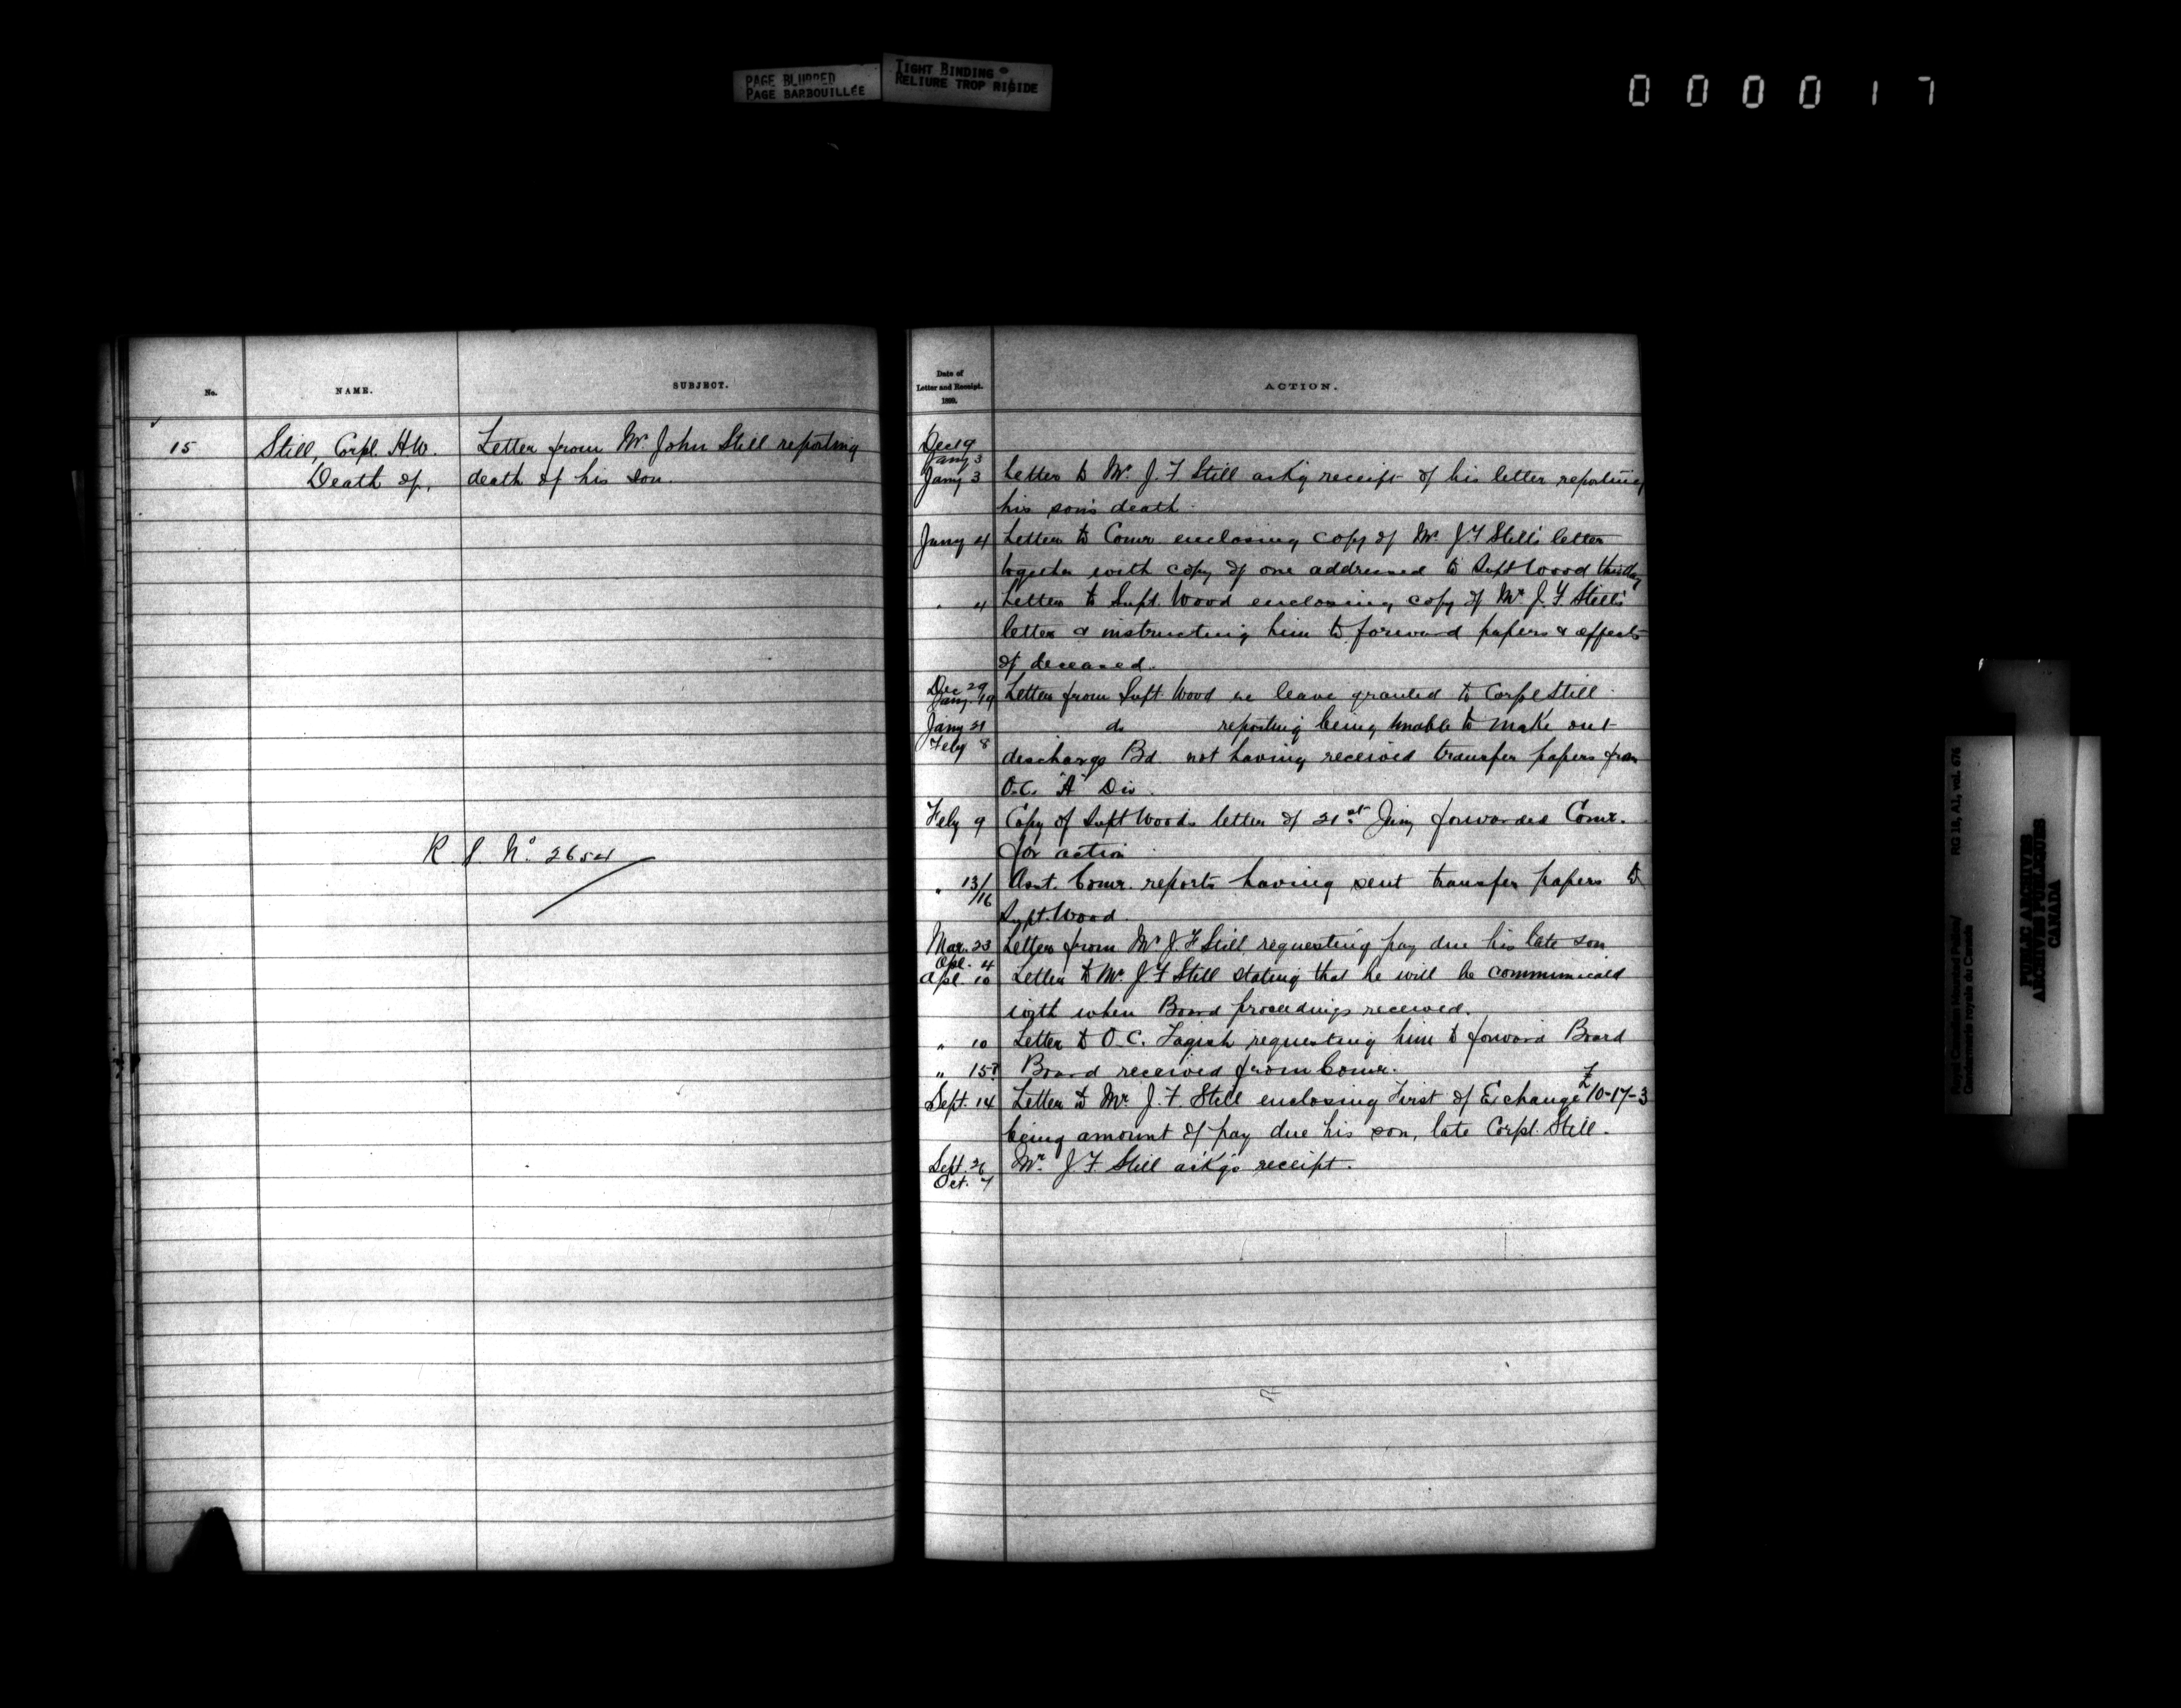 PAGE BLURRED
PAGE BARBOUILLÉE
TIGHT BINDING
RELIURE TROP RIGIDE
000017
No.
NAME.
SUBJECT.
15
Still, Corpl. H.W.
Letter from Mr. John Still reporting
Death of,
death of his son.
R. S. No. 2654
Date of
Letter and Receipt.
1899.
ACTION.
Dec 19
Jany 3
Jany 3 Letter to Mr. J. F Still ack'g receipt of his letter reporting
his son's death.
Jany 4 Letter to Comr. enclosing copy of Mr. J. F Still's letter
together with copy of one addressed to Supt Wood this day
" 4 Letter to Supt. Wood enclosing copy of Mr J. F Still's
letter & instructing him to forward papers & effects
of deceased.
Dec 29
Jany. 19 Letter from Supt. Wood re leave granted to Corpl Still.
Jany 21 do reporting being unable to make out
Feby 8
discharge Bd. not having received transfer papers from
O.C. "A" Div.
Feby 9 Copy of Supt Woods letter of 21st Jany forwarded Comr.
for action
" 13/16 Asst. Comr. reports having sent transfer papers to
Supt. Wood.
Mar. 23 Letter from Mr J. F Still requesting pay due his late son
Apl. 4
Apl. 10 Letter to Mr. J. F Still stating that he will be communicated
with when Board proceedings received.
" 10 Letter to O.C. Tagish requesting him to forward Board
" 15? Board received from Comr.
Sept. 14 Letter to Mr. J. F. Still enclosing First of Exchange £10-17-3
being amount of pay due his son, late Corpl. Still.
Sept. 26 Mr. J. F. Still ack'gs receipt.
Oct. 7
Royal Canadian Mounted Police/
Gendarmerie royale du Canada
RG 18, A1, vol. 676
PUBLIC ARCHIVES
ARCHIVES PUBLIQUES
CANADA